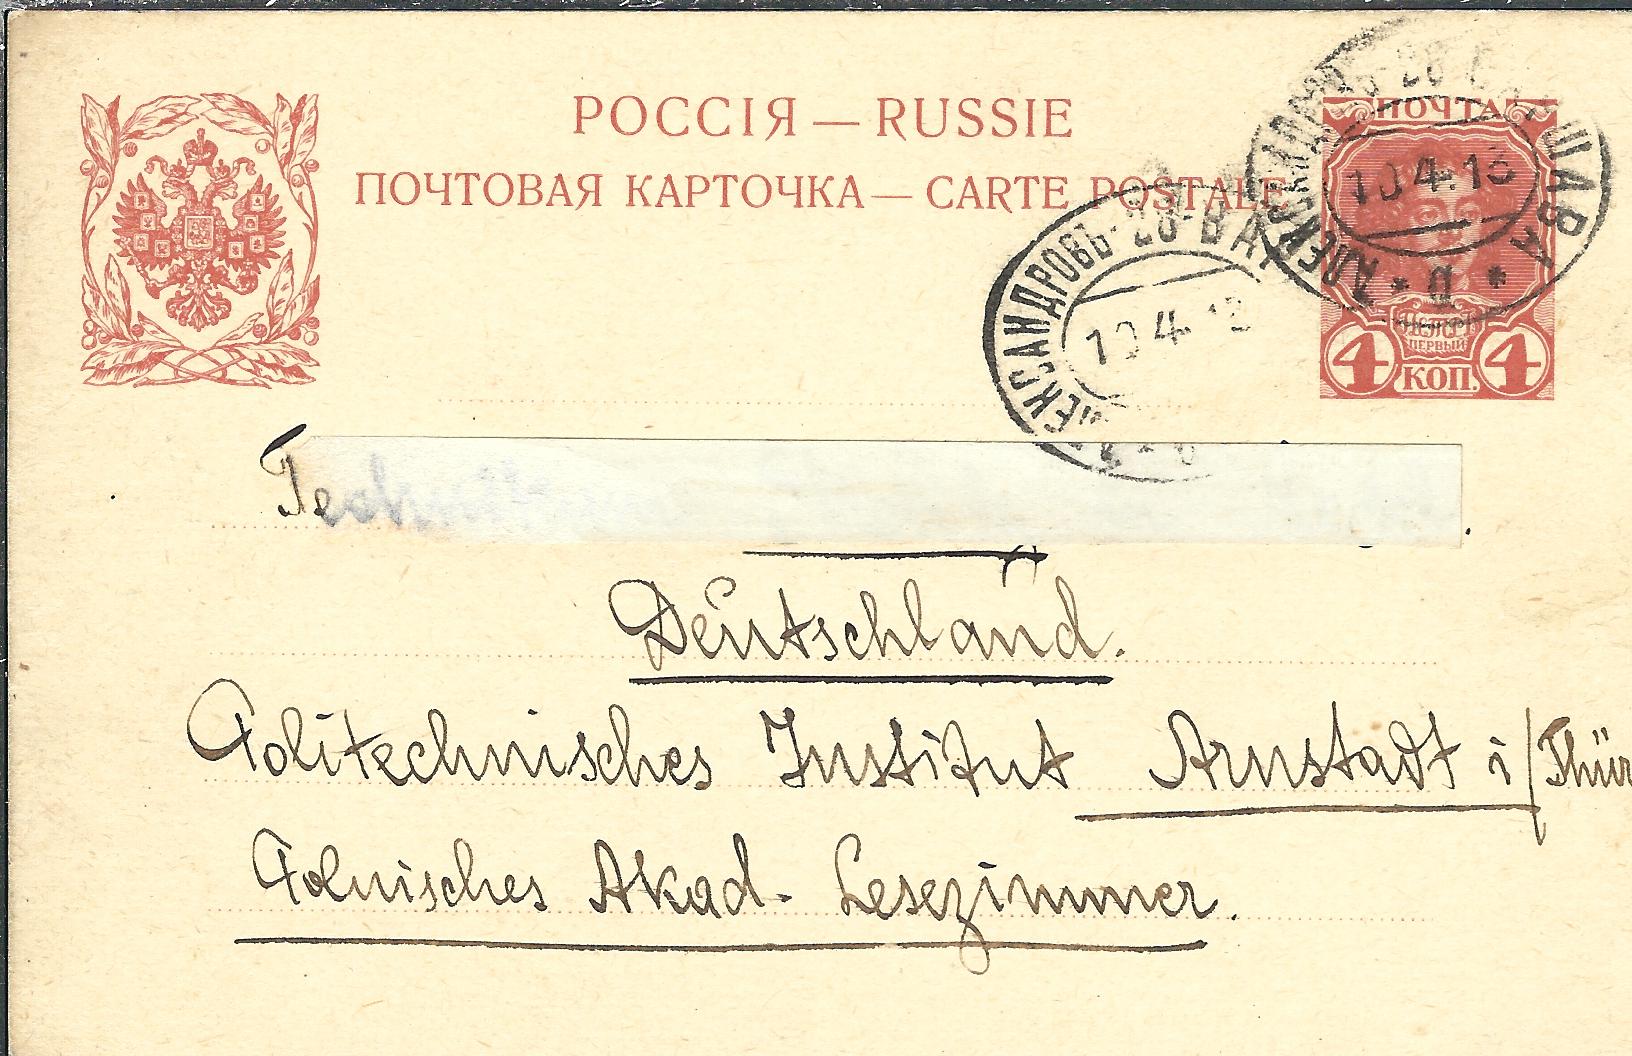 РОССІЯ — RUSSIE
ПОЧТОВАЯ КАРТОЧКА — CARTE POSTALE
ПОЧТА
ПЕРВЫЙ
4 КОП. 4
АЛЕКСАНДРОВЪ-28-ВАРШАВА
10.4.13
АЛЕКСАНДРОВЪ-28-ВА
10 4 13
Deutschland.
Politechnisches Institut Arnstadt i/Thür
Polnisches Akad. Lesezimmer.